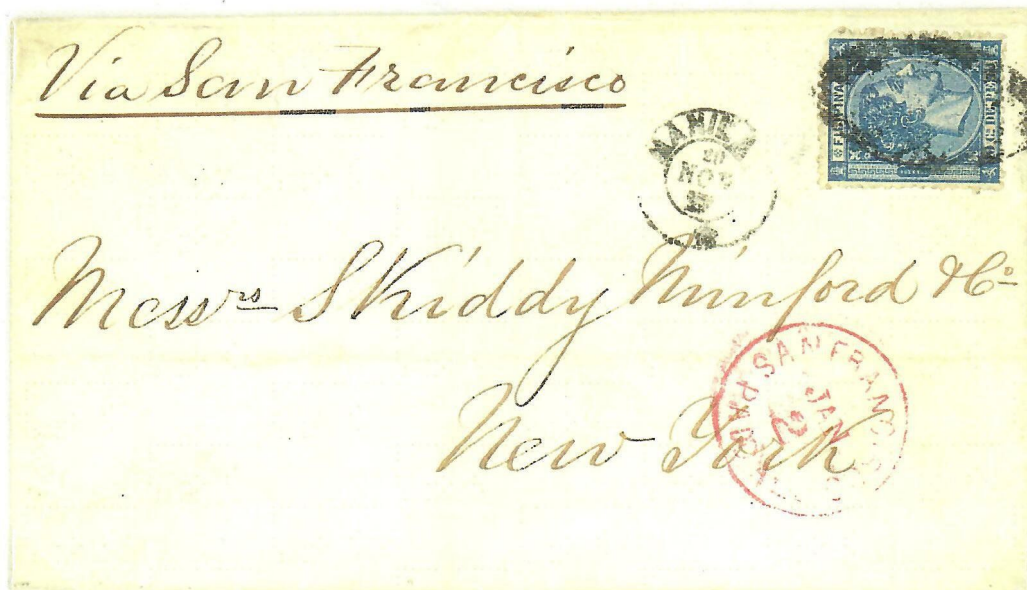 Via San Francisco
FILIPINAS
MANILA
20
NOV
Messrs Skiddy Minford & Co
New York
SAN FRANCISCO
JAN
2
PAID ALL